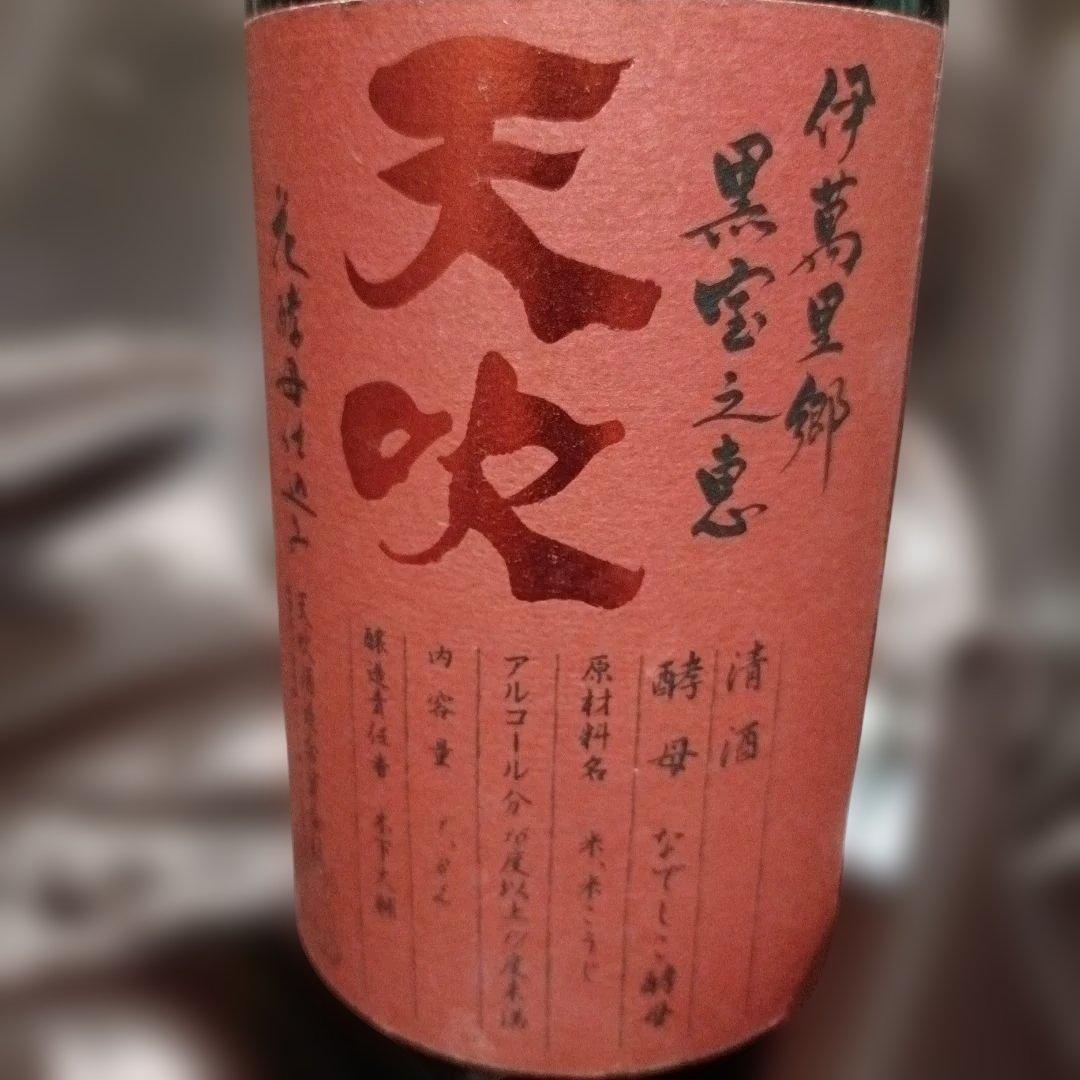 伊萬里郷
黒宝之恵
天吹
清酒
酵母 なでしこ酵母
原材料名 米、米こうじ
アルコール分 16度以上17度未満
内容量 1.8L
醸造責任者 木下大輔
花酵母仕込み